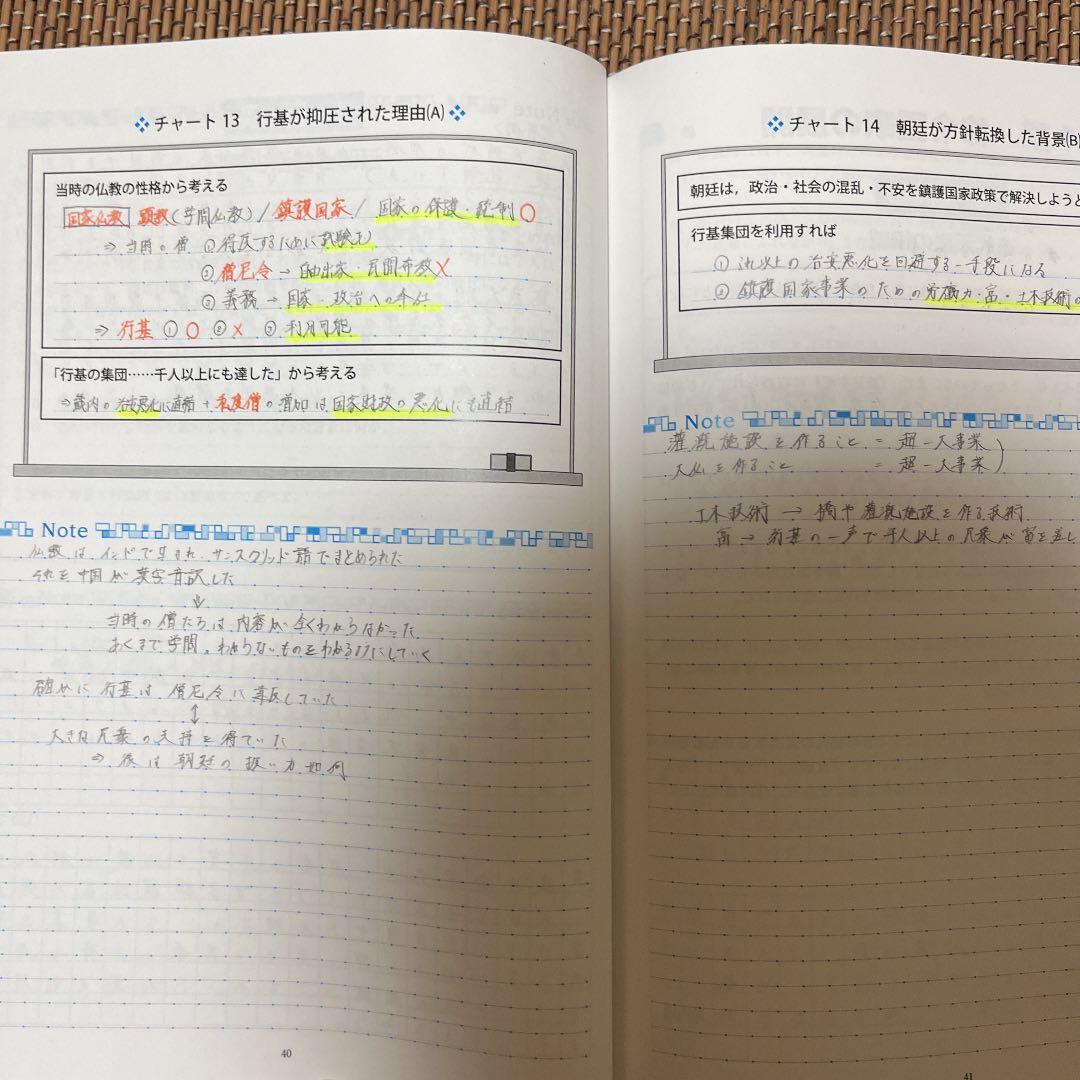 チャート 13 行基が抑圧された理由(A)
当時の仏教の性格から考える
国家仏教 顕教(学問仏教)/鎮護国家/国家の保護・統制○
⇒当時の僧 ①得度するために試験も
②僧尼令→自由出家・民間布教×
③義務→国家・政治への奉仕
⇒行基 ①○ ②× ③利用可能
「行基の集団……千人以上にも達した」から考える
⇒畿内の治安悪化に直結+私度僧の増加は国家財政の悪化にも直結
Note
仏教は、インドで生まれ、サンスクリッド語でまとめられた
それを中国が漢字音訳した
⇓
当時の僧たちは、内容が全くわからなかった
あくまで学問。わからないものをわかるようにしていく
確かに行基は僧尼令に違反していた
↕
大きな民衆の支持を得ていた
⇒後は朝廷の扱い方如何
40
チャート 14 朝廷が方針転換した背景(B)
朝廷は,政治・社会の混乱・不安を鎮護国家政策で解決しようと
行基集団を利用すれば
①これ以上の治安悪化を回避する一手段になる
②鎮護国家事業のための労働力・富・土木技術の
Note
灌漑施設を作ること = 超一大事業
大仏を作ること = 超一大事業
土木技術 → 橋や灌漑施設を作る技術
富 → 行基の一声で千人以上の民衆が富を差し
41